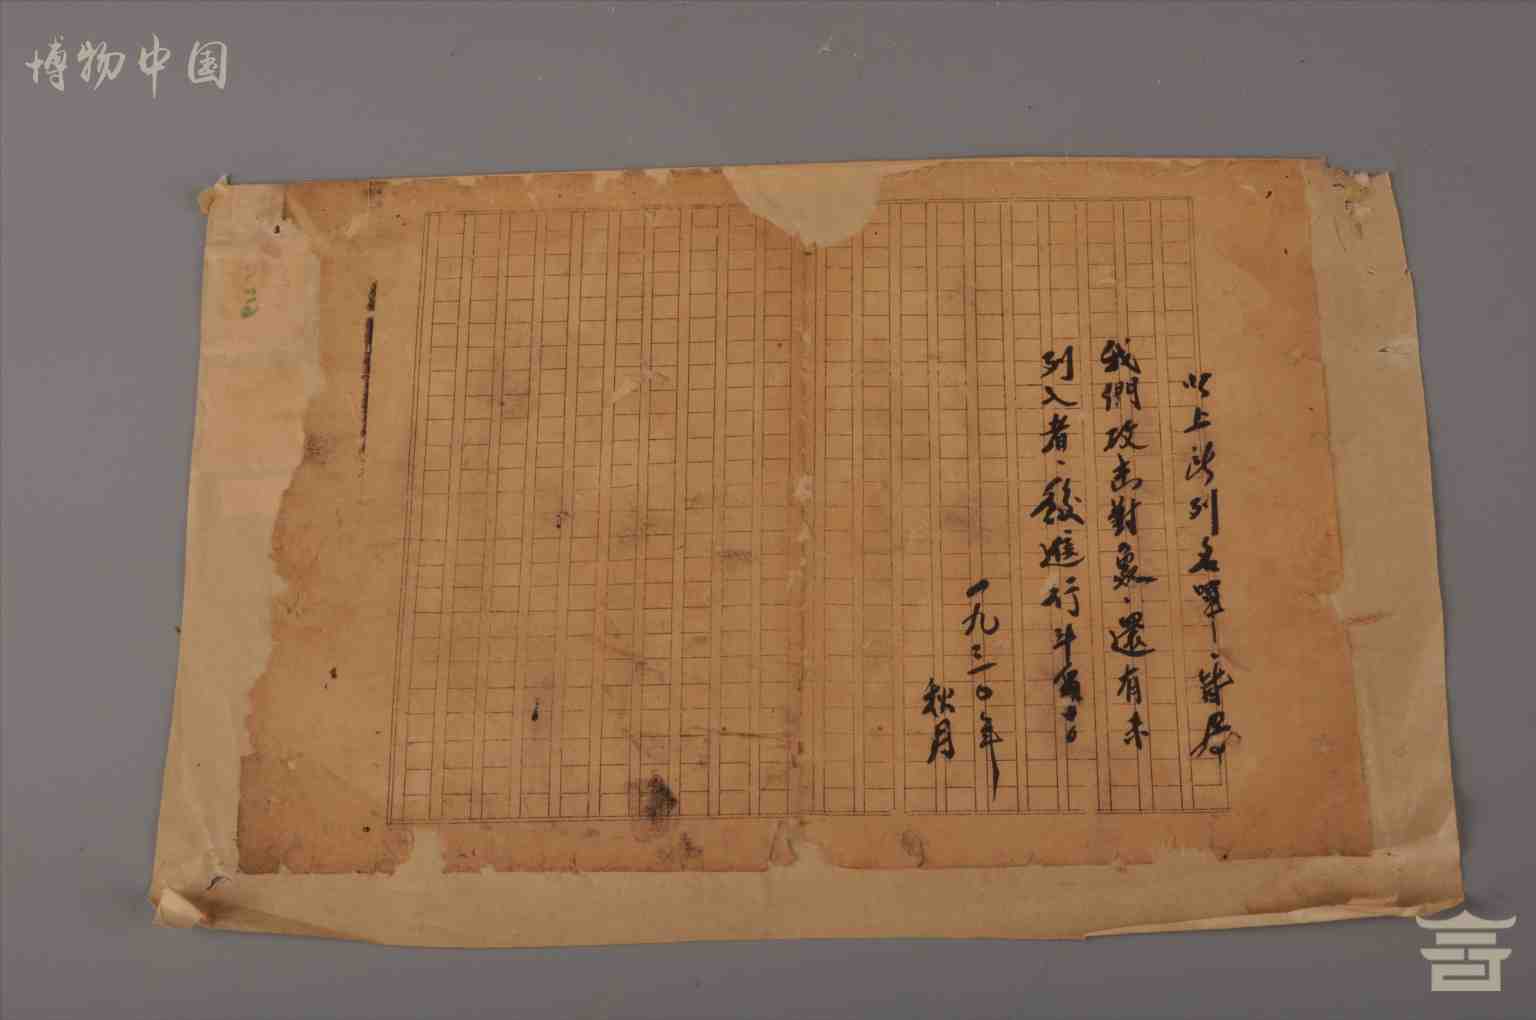 博物中国
以上所列名單、皆屬
我們攻击對象、還有未
列入者、後進行斗爭
一九三〇年
秋月